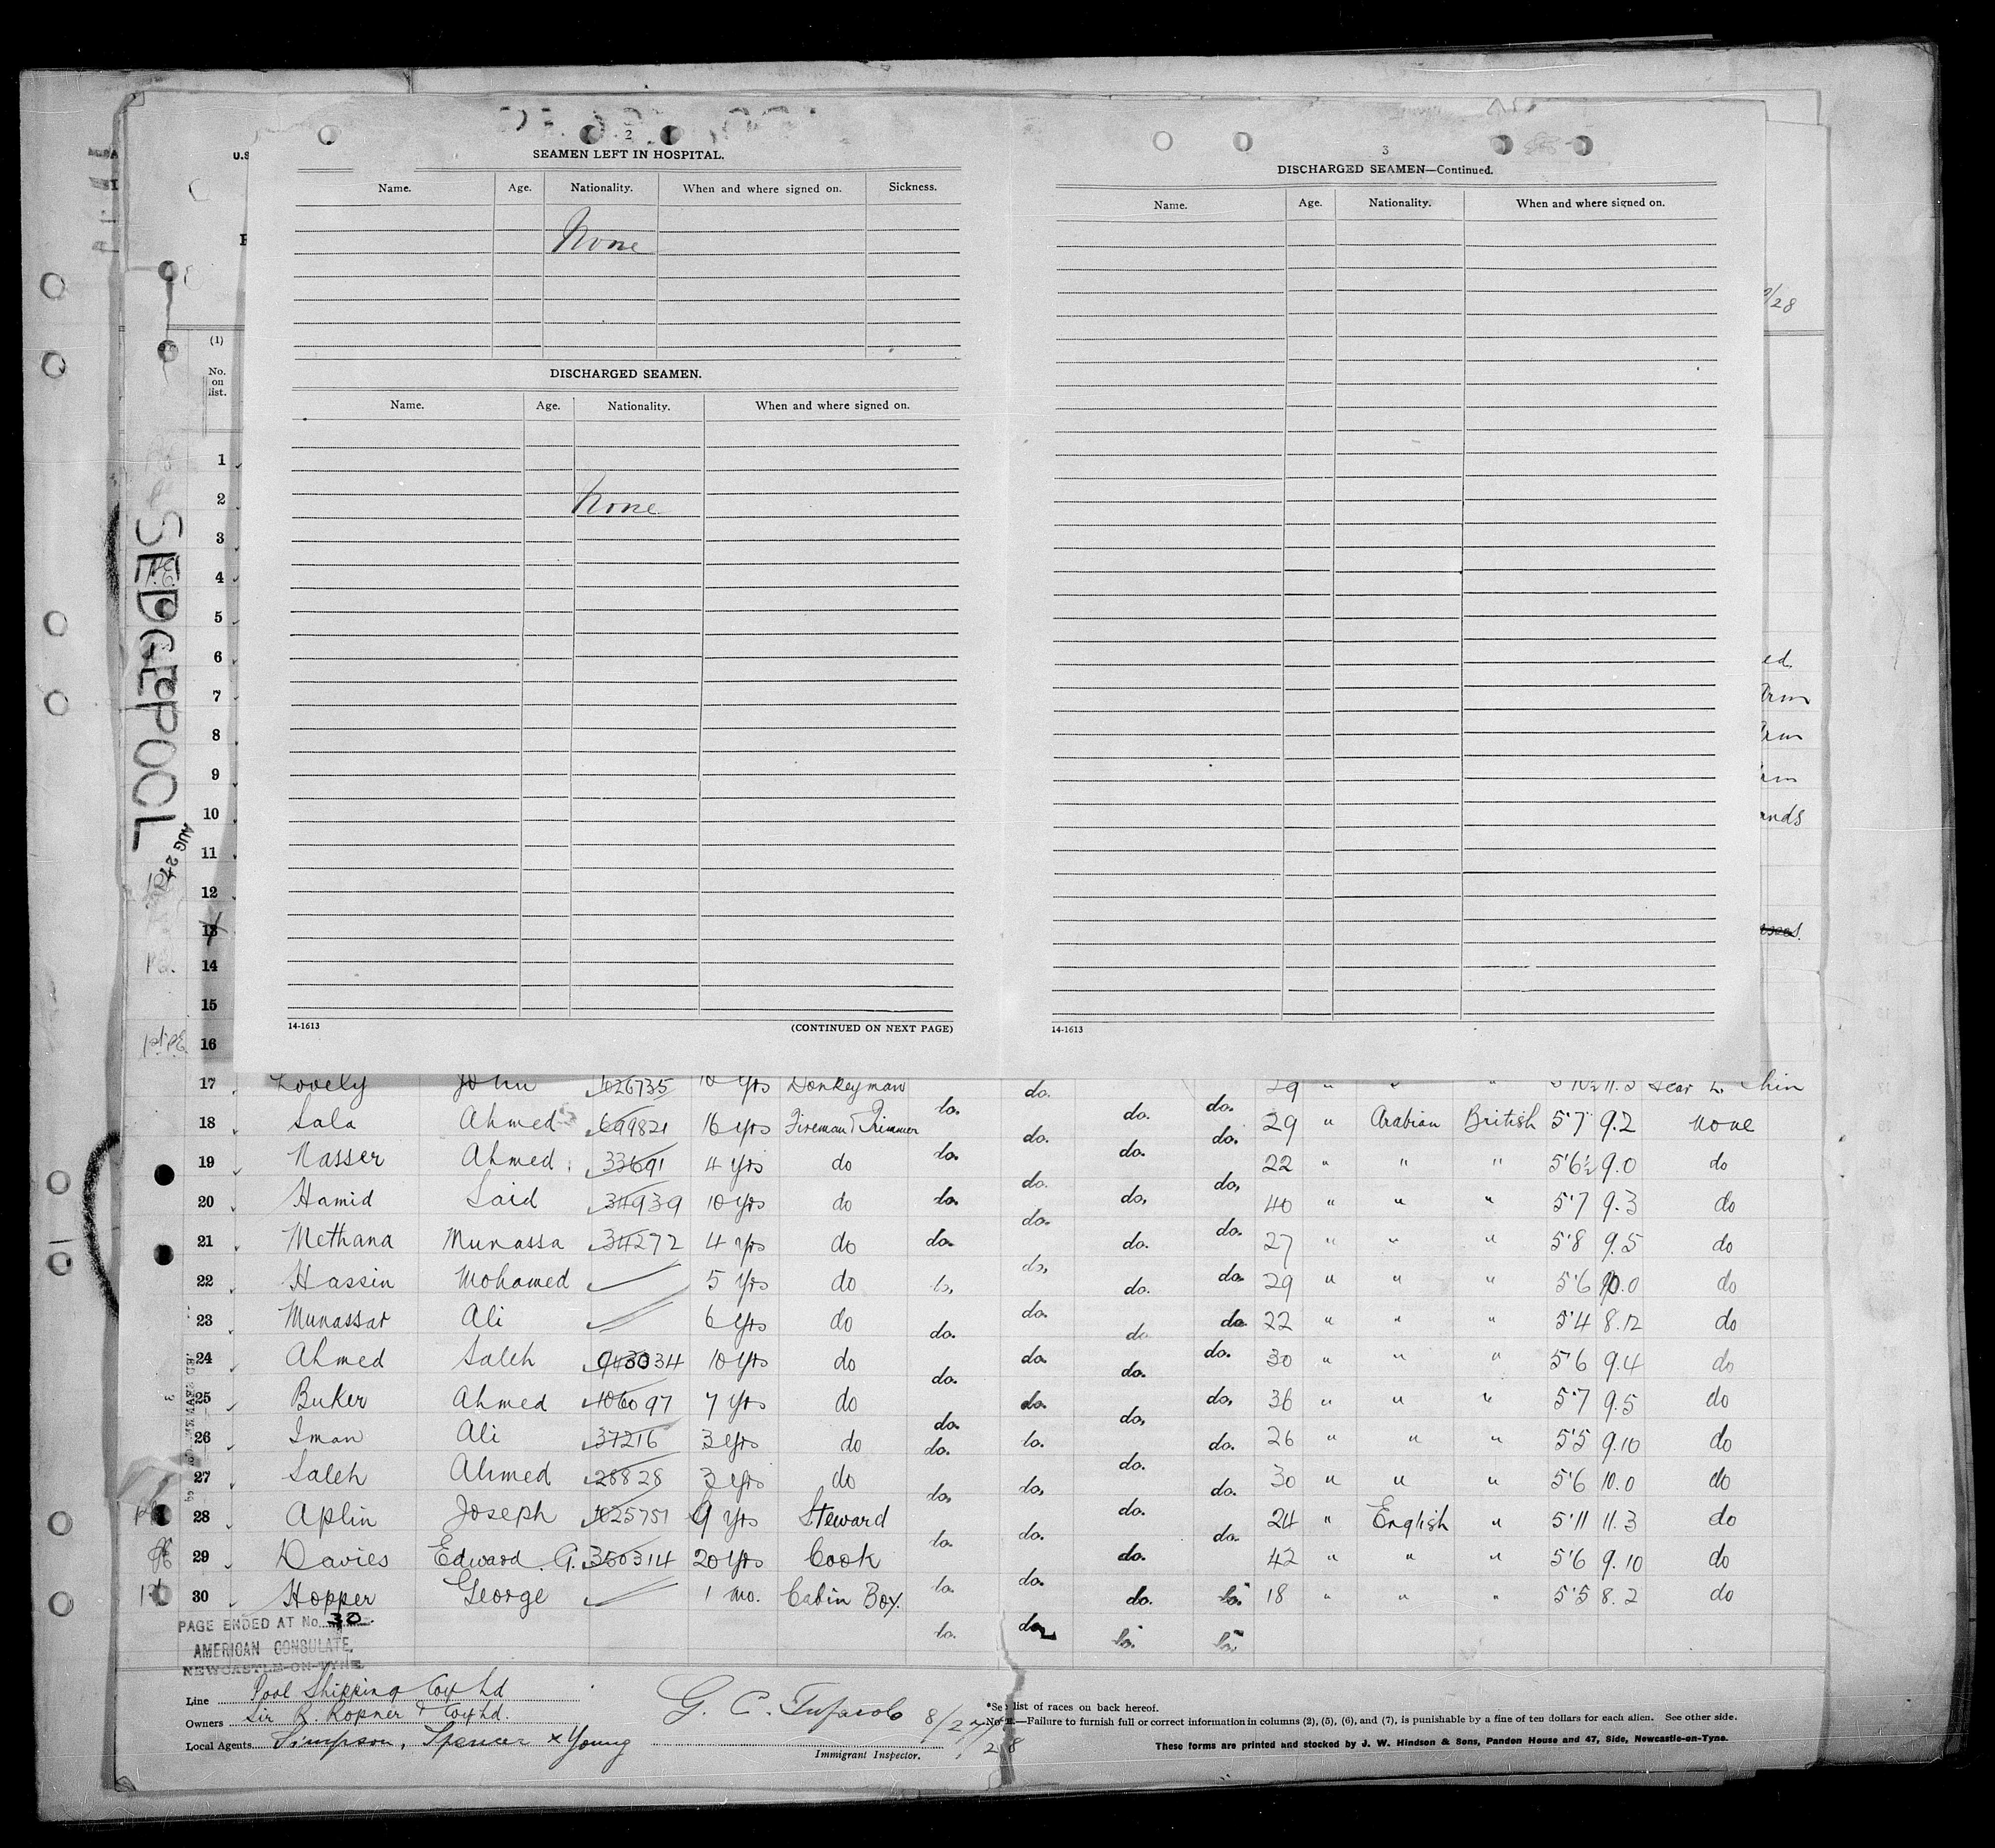 2
SEAMEN LEFT IN HOSPITAL.
Name. Age. Nationality. When and where signed on. Sickness.
None
DISCHARGED SEAMEN.
Name. Age. Nationality. When and where signed on.
None
14-1613 (CONTINUED ON NEXT PAGE)
3
DISCHARGED SEAMEN—Continued.
Name. Age. Nationality. When and where signed on.
14-1613
U.S
(1)
No. on list.
SEDGEPOOL
AUG 27
1
2
3
4
5
6
7
8
9
10
11
12
13
14
15
16
17 Lovely John 1026735 10 yrs Donkeyman do. 29 " " " Scar L. Chin
18 Sala Ahmed 699821 16 yrs Fireman & Trimmer do. do. do. do. 29 " Arabian British 5'7 9.2 none
19 Nasser Ahmed 33691 4 yrs do do. do. do. do. 22 " " " 5'6½ 9.0 do
20 Hamid Said 34939 10 yrs do do. do. do. do. 40 " " " 5'7 9.3 do
21 Methana Munassa 34272 4 yrs do do. do. do. do. 27 " " " 5'8 9.5 do
22 Hassin Mohamed 5 yrs do do. do. do. do. 29 " " " 5'6 10.0 do
23 Munassar Ali 6 yrs do do. do. do. do. 22 " " " 5'4 8.12 do
24 Ahmed Saleh 943034 10 yrs do do. do. do. do. 30 " " " 5'6 9.4 do
25 Buker Ahmed 106097 7 yrs do do. do. do. do. 36 " " " 5'7 9.5 do
26 Iman Ali 37216 3 yrs do do. do. do. do. 26 " " " 5'5 9.10 do
27 Saleh Ahmed 28828 3 yrs do do. do. do. do. 30 " " " 5'6 10.0 do
28 Aplin Joseph 1025751 9 yrs Steward do. do. do. do. 24 " English " 5'11 11.3 do
29 Davies Edward G. 350314 20 yrs Cook do. do. do. 42 " " " 5'6 9.10 do
30 Hopper George 1 mo. Cabin Boy. do. do. do. do. 18 " " " 5'5 8.2 do
PAGE ENDED AT No. 30
AMERICAN CONSULATE,
NEWCASTLE-ON-TYNE.
Line Pool Shipping Coy Ld
Owners Sir R. Ropner & Coy Ld.
Local Agents Simpson, Spencer & Young
8/27/28
Immigrant Inspector.
*See list of races on back hereof.
Note.—Failure to furnish full or correct information in columns (2), (5), (6), and (7), is punishable by a fine of ten dollars for each alien. See other side.
These forms are printed and stocked by J. W. Hindson & Sons, Pandon House and 47, Side, Newcastle-on-Tyne.